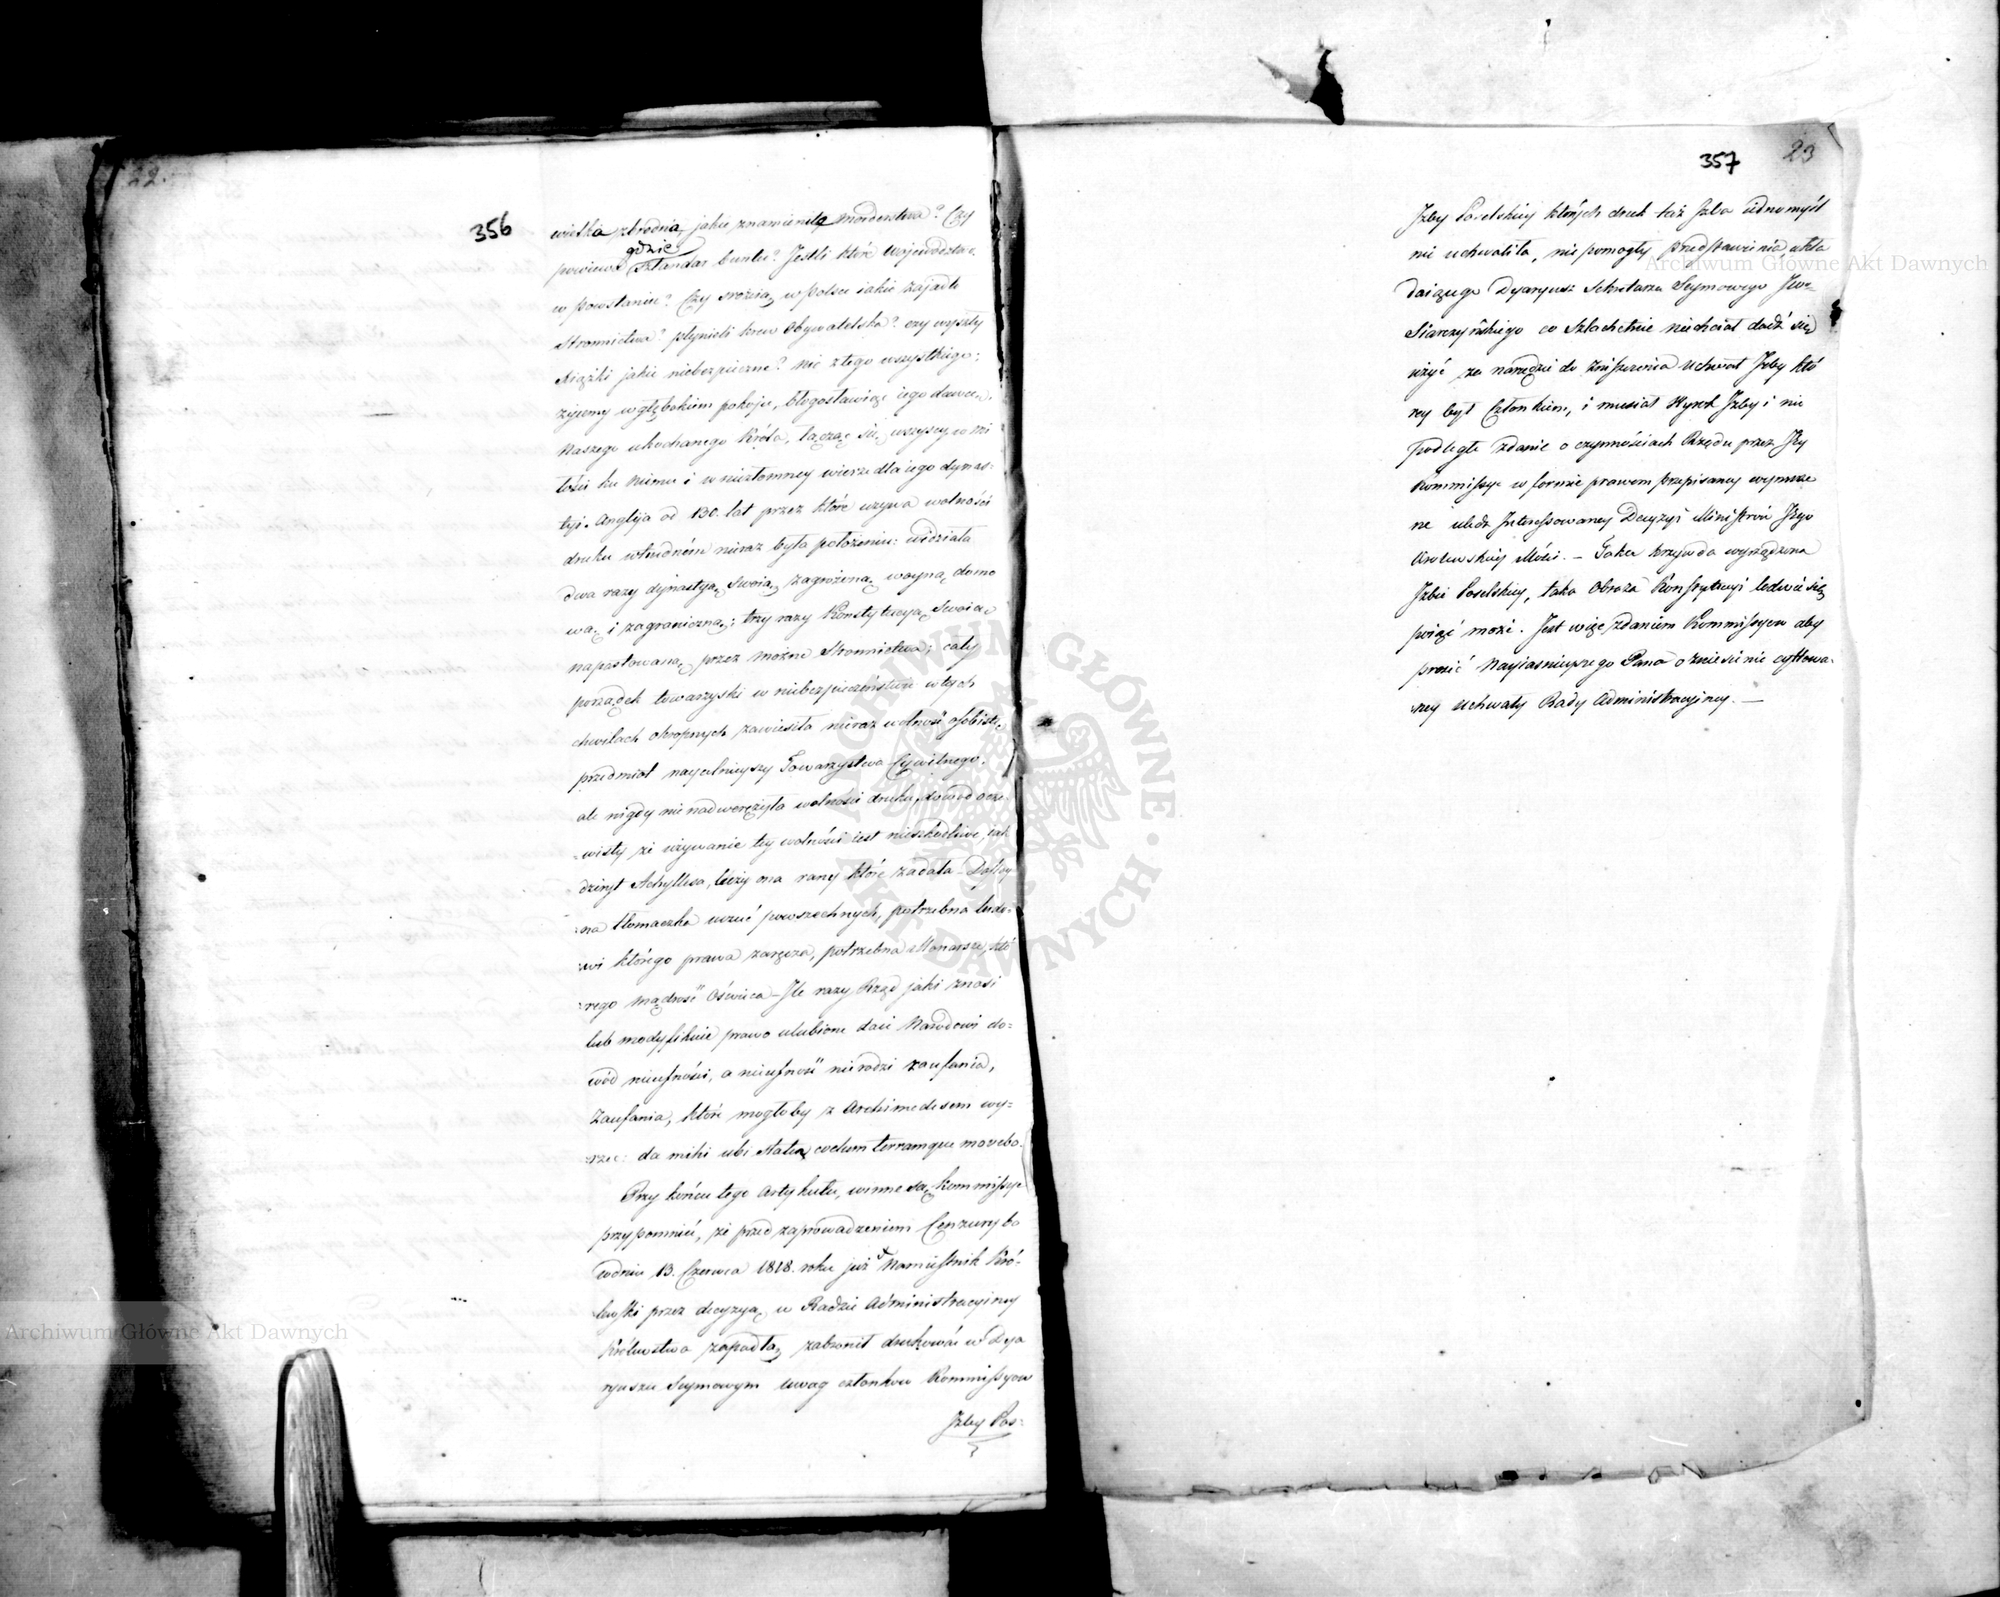 22.
356
wielka zbrodnia, jakie znamienite morderstwa? Czy
gdzie
powiewa sztandar buntu? Jestli które Województwo
w powstaniu? Czy srożeią w Polsce iakie zajadłe
Stronnictwa? płynieli krew Obywatelska? czy wyszły
Książki jakie niebezpieczne? nic z tego wszystkiego;
żyiemy w głębokim pokoju, błogosławiąc iego dawcę,
Naszego ukochanego Króla, łącząc się wszyscy w mi
łości ku Niemu i w niezłomney wierze dla iego dynas:
tyi. Anglija od 130. lat przez które używa wolności
druku w trudném nieraz była położeniu: widziała
dwa razy dynastyą Swoią zagrożoną woyną domo
wą i zagraniczną; trzy razy Konstytucyą Swoią
napastowaną przez możne Stronnictwa; cały
porządek towarzyski w niebezpieczeństwie w tych
chwilach okropnych zawiesiła nieraz wolność osobistą
przedmiot naycelnieyszy Towarzystwa Cywilnego,
ale nigdy nie nadwerężyła wolności druku, dowód ocze
-wisty że używanie tey wolności iest nieszkodliwe, jak
dziryt Achyllesa, leczy ona rany które zadała –
:na tłomaczka uczuć powszechnych, potrzebna ludo:
:wi którego prawa zaręcza, potrzebna Monarsze, któ
:rego mądrość oświeca – Ile razy Rząd jaki znosi
lub modyfikuie prawo ulubione daie Narodowi do:
wód nieufności, a nieufność nie rodzi zaufania,
Zaufania, które mogłoby z Archimedesem wy:
:rzec: da mihi ubi statem coelum terramque movebo.
Przy końcu tego Artykułu, winne są Kommissye
przypomnieć, że przed zaprowadzeniem Cenzury bo
w dniu 13. Czerwca 1818. roku już Namiestnik Kró:
lewski przez decyzyą w Radzie Administracyiney
Królewstwa zapadłą zabronił drukować w Dya
ryuszu Seymowym uwag członków Kommissyow
Izby Pos:
357
23
Izby Poselskiey których druk taż Izba iednomyśl
nie uchwaliła, nie pomogły przedstawienia ukła
daiącego Dyaryusz Sekretarza Seymowego Xie
Siarczyńskiego co Szlachetnie niechciał dadź się
użyć za narzędzie do zniszczenia Uchwał Izby któ
rey był Członkiem, i musiał Wyrok Izby i nie
podległe zdanie o czynnościach Rządu przez Jey
Kommissye w formie prawem przepisaney wyrzecze
ne uledz Interessowaney Decyzyi Ministrów Jego
Królewskiey Mości. – Taka krzywda wyrządzona
Izbie Poselskiey, taka Obraza Konstytucyi ledwie się
poiąć może. Jest więc zdaniem Kommissyow aby
prosić Nayiaśnieyszego Pana o zniesienie cyttowa:
:ney Uchwały Rady Administracyiney. –
Archiwum Główne Akt Dawnych
Archiwum Główne Akt Dawnych
ARCHIWUM GŁÓWNE · AKT DAWNYCH ·